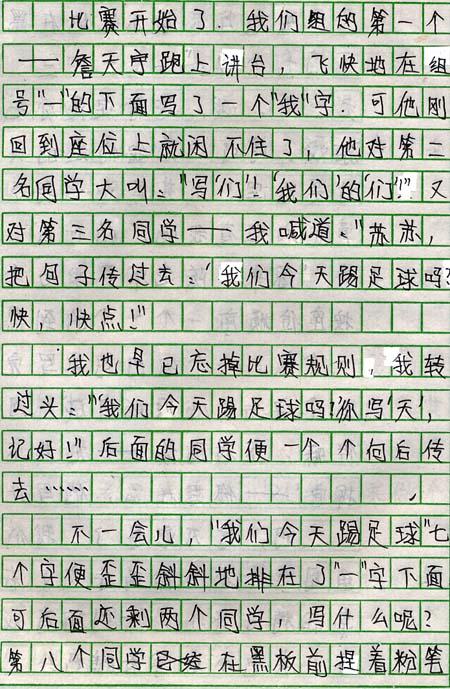 比赛开始了.我们组的第一个
——詹天宇跑上讲台,飞快地在组
号"一"的下面写了一个"我"字.可他刚
回到座位上就闲不住了,他对第二
名同学大叫:"写'们'!'我们'的'们'!"又
对第三名同学——我喊道:"苏苏,
把句子传过去:'我们今天踢足球吗?'
快,快点!"
我也早已忘掉比赛规则,我转
过头:"'我们今天踢足球吗?'你写'天',
记好!"后面的同学便一个个向后传
去……
不一会儿,"我们今天踢足球"七
个字便歪歪斜斜地排在了"一"字下面
可后面还剩两个同学,写什么呢?
第八个同学已经在黑板前捏着粉笔